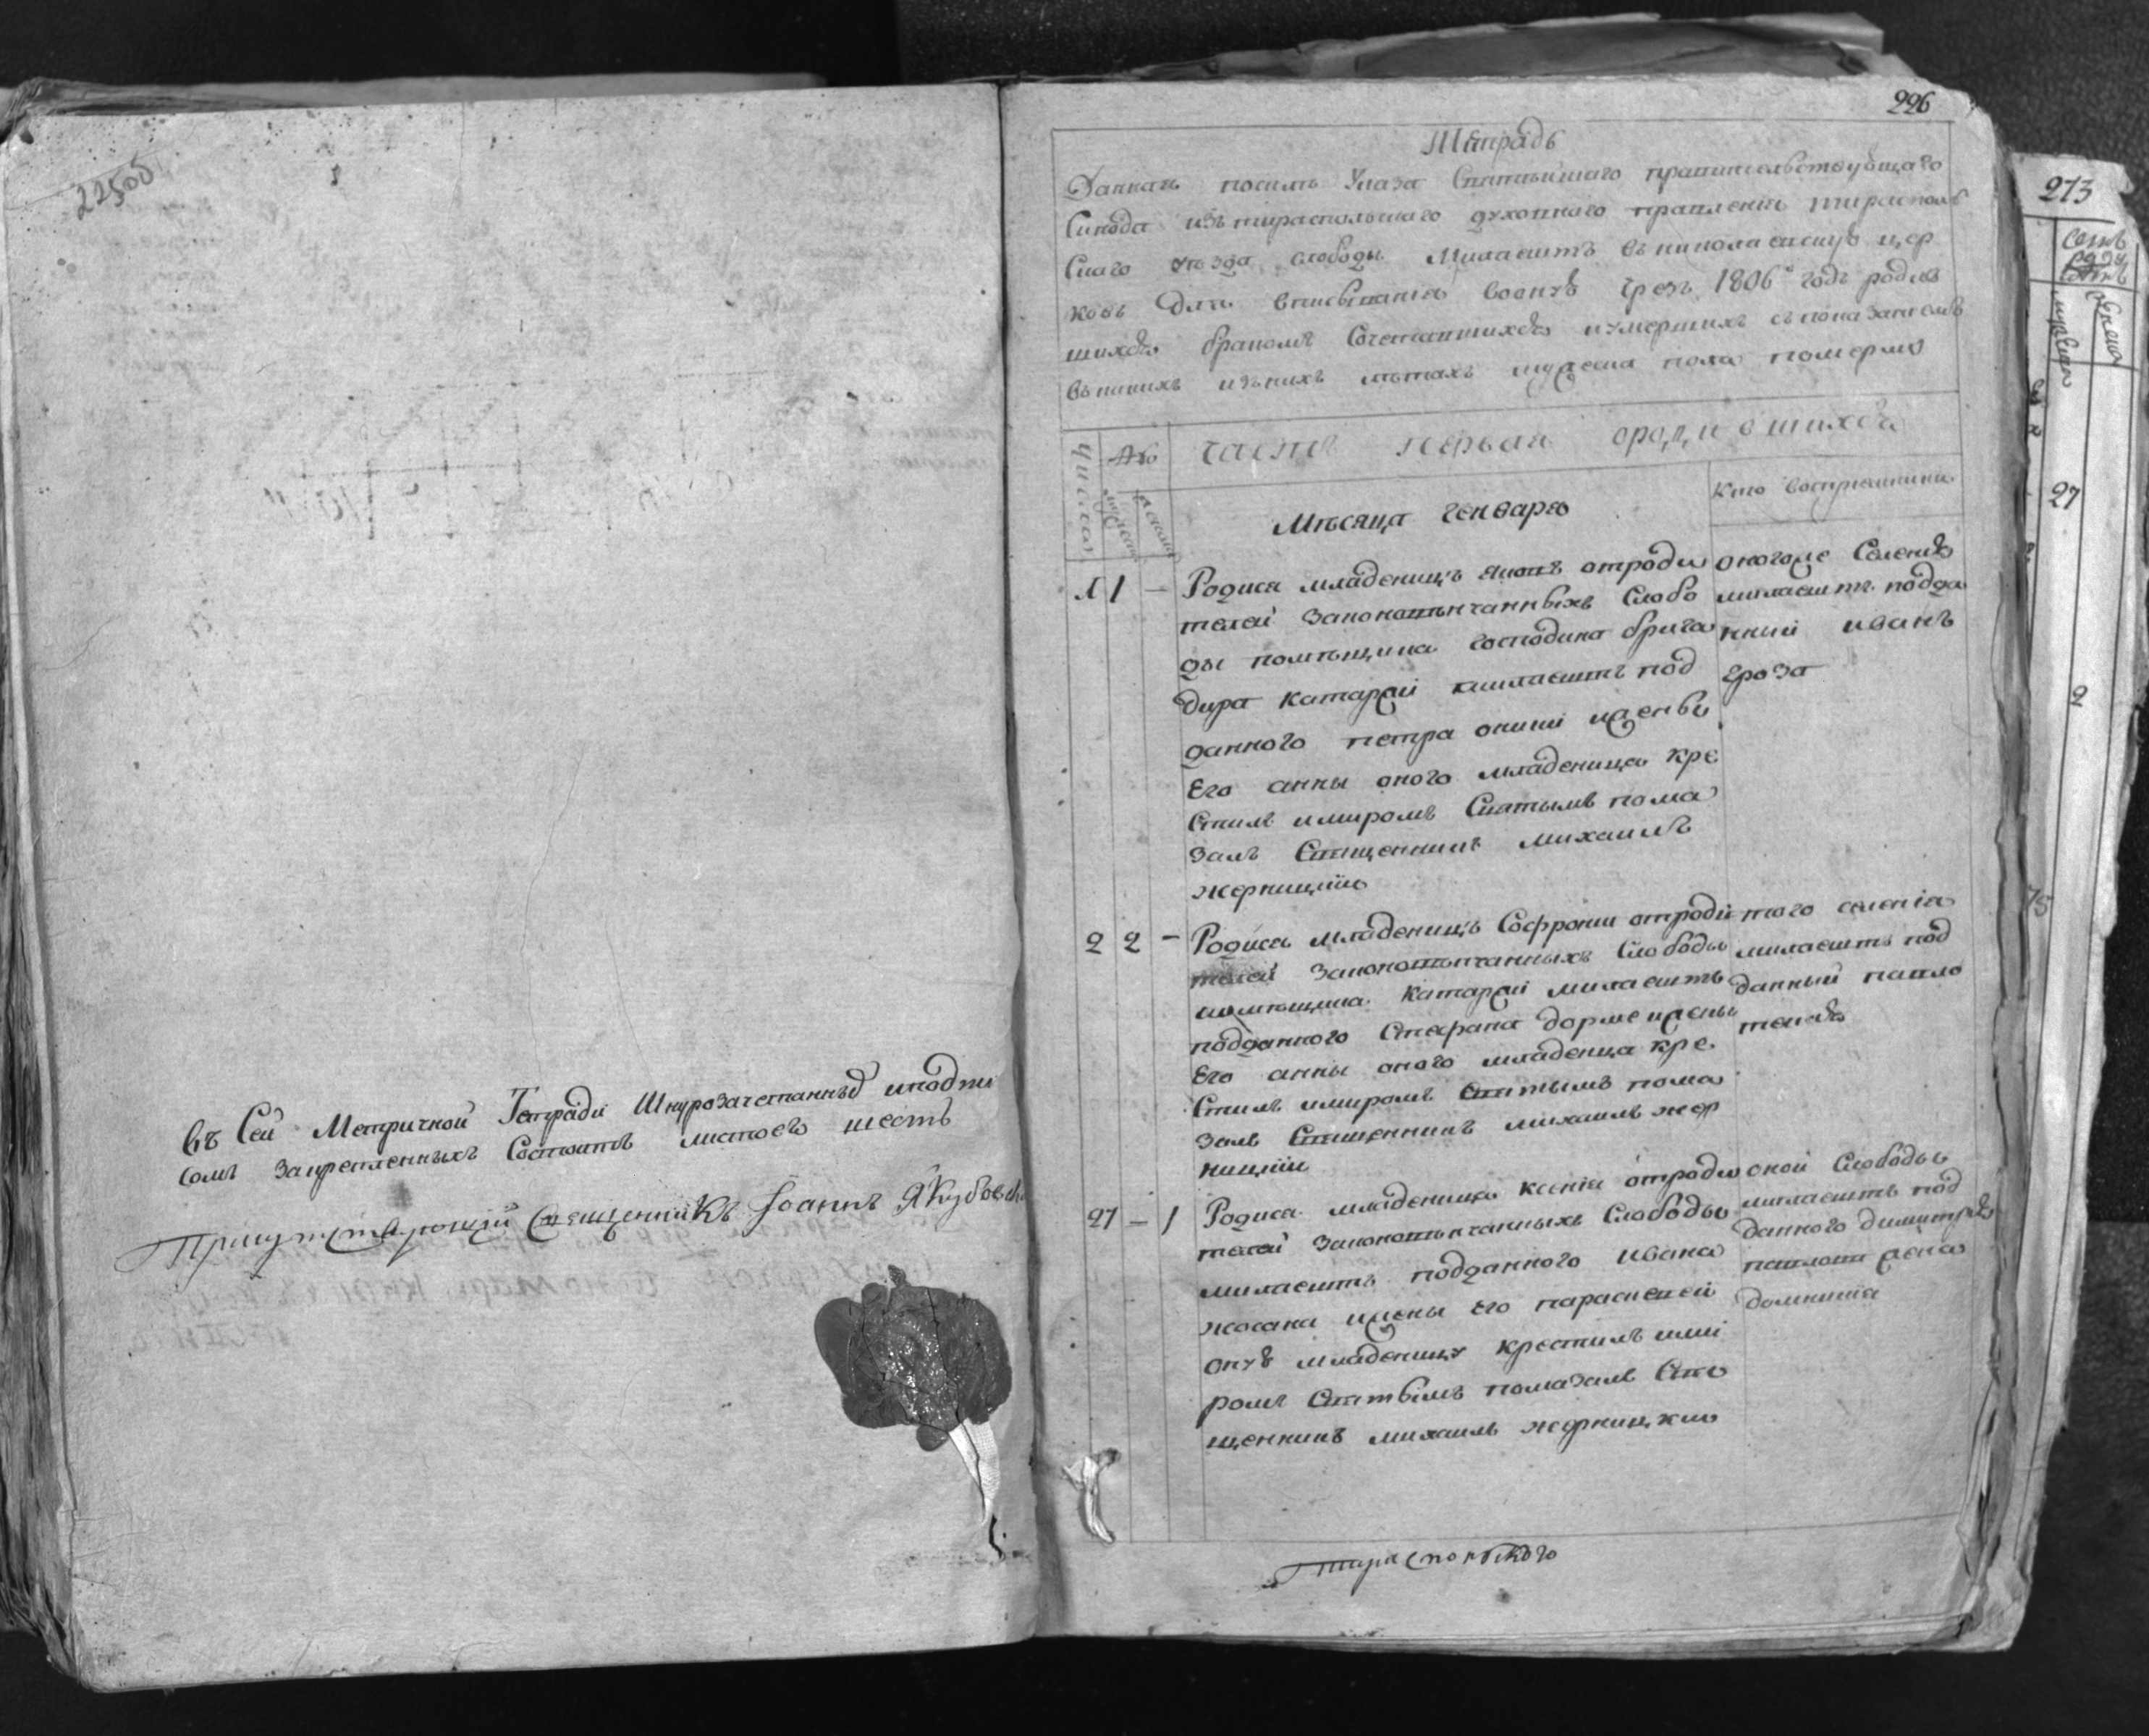 22505
въ Сей Метричной Тетради Шнурозачетанныѣ иподпи
сомъ Закрепленныхъ Состоитъ листовъ шесть
Присутствующій Священникъ Іоаннъ Якубовск
226
Тетрадь
Данная посилѣ Указа Святѣйшаго правительствующаго
Синода изъ тираспольскаго духовнаго правленія тирасполь
Скаго уѣзда слободы Милаештъ въ николаевскую цер
ковь Для вписыванія вооную чрезъ 1806й годъ родив
шихся бракомъ Сочетавшихся иумершихъ съ показаніемъ
въкакихъ изънихъ лѣтахъ мужеска пола померло
Числа
№
часть первая ородившихся
мужеск
женска
Мѣсяца генваря
Кто восприемники
1 1 — Родися младеницъ отроди
телей Законовѣнчанныхъ Слобо
ды помѣщика господина брига
дира Катаржи милаештъ под
данного петра оники ижены
Его анны оного младеница кре
стилъ имиромъ Святымъ пома
залъ Священникъ михаилъ
жерницкій
оногоже Селенія
милаештъ подда
нный иванъ
гроза
2 2 — Родися Младеницъ Софроний отроди
телей Законовѣнчанныхъ Слободы
помѣщика Катаржи милаештъ
подданного Стефана дорме ижены
Его анны оного младенца кре
стилъ имиромъ Святымъ пома
залъ Священникъ михаилъ жер
ницкій
того селенія
милаештъ под
данный павло
27 — 1 Родися младеница ксенія отроди
телей Законовѣнчанныхъ Слободы
милаештъ подданного ивана
жосана ижены Его параскевей
онуѣ младеницу крестилъ ими
ромъ Святымъ помазалъ Свя
щенникъ михаилъ жерницкій
оной Слободы
милаештъ под
данного димитрія
жена
домникия
Тираспольского
273
27
2